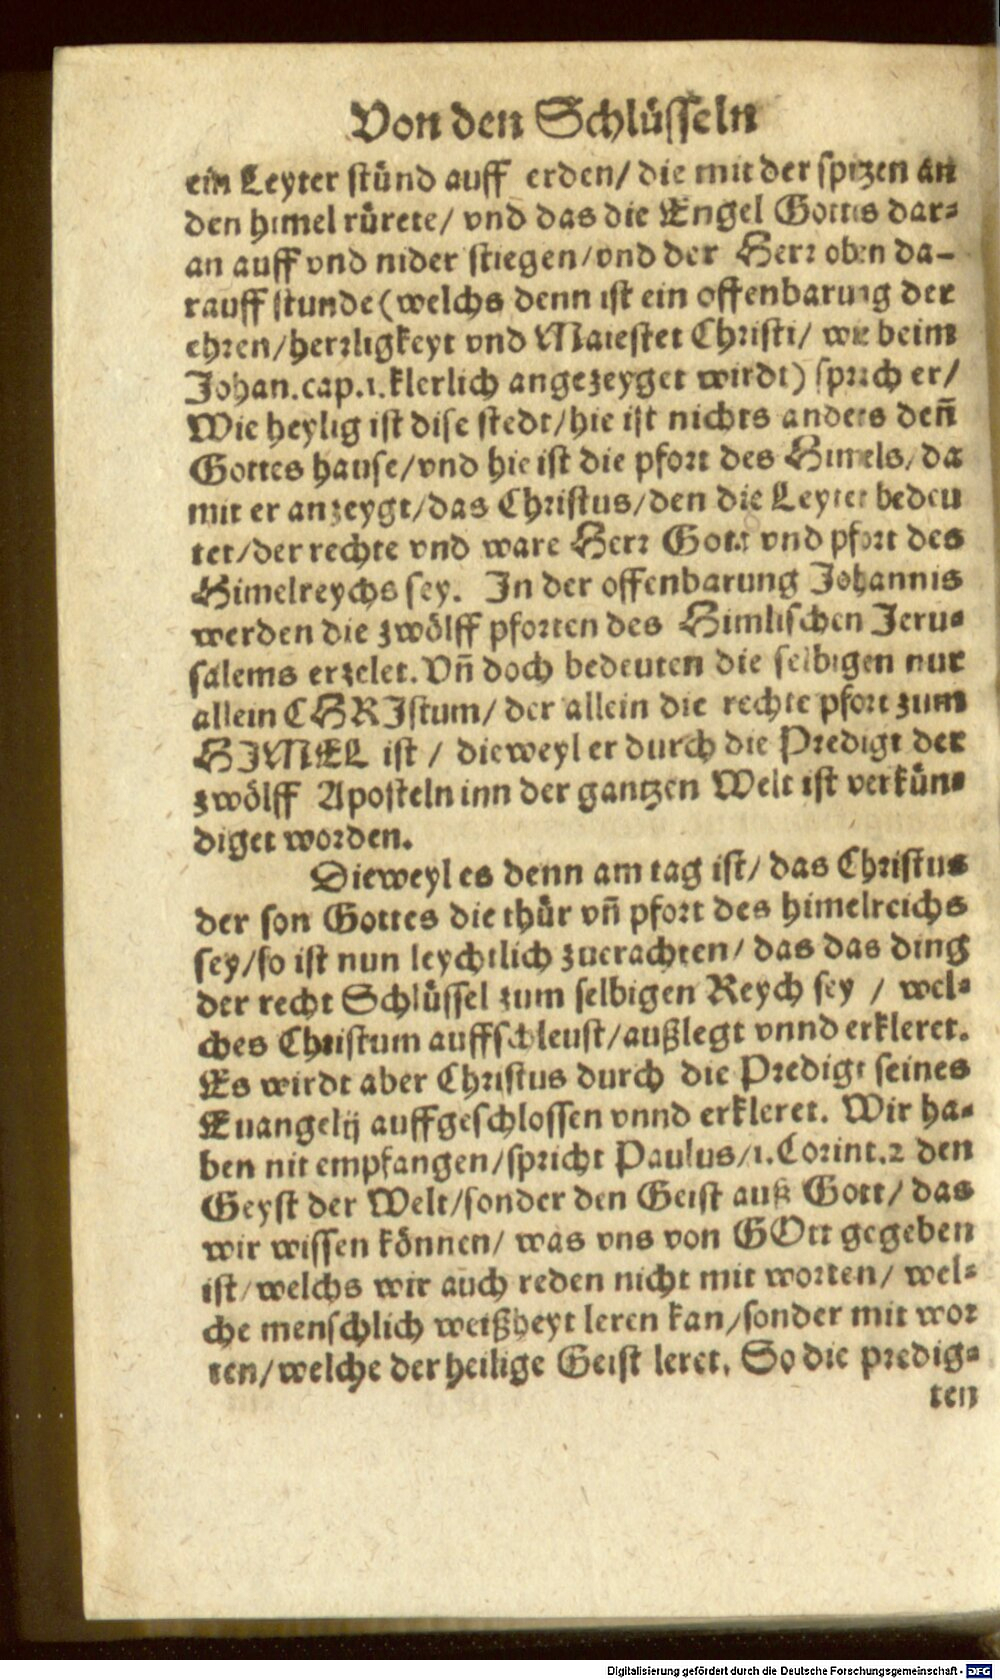 Von den Schlüsseln
ein Leyter stünd auff erden/ die mit der spitzen an
den himel rürete/ vnd das die Engel Gottes dar-
an auff vnd nider stiegen/vnd der Herr oben da-
rauff stunde (welchs denn ist ein offenbarung der
ehren/herrligkeyt vnd Maiestet Christi/ wie beim
Johan.cap.1.klerlich angezeyget wirdt) sprach er/
Wie heylig ist dise stedt/hie ist nichts anders deñ
Gottes hause/vnd hie ist die pfort des Himels/da
mit er anzeygt/das Christus/den die Leyter bedeu
tet/der rechte vnd ware Herr Gott vnd pfort des
Himelreychs sey. In der offenbarung Johannis
werden die zwölff pforten des Himlischen Jeru-
salems erzelet. Vñ doch bedeuten die selbigen nur
allein CHRJstum/ der allein die rechte pfort zum
HJMEL ist / dieweyl er durch die Predigt der
zwölff Aposteln inn der gantzen Welt ist verkün-
diget worden.
Dieweyl es denn am tag ist/ das Christus
der son Gottes die thür vñ pfort des himelreichs
sey/so ist nun leychtlich zuerachten/ das das ding
der recht Schlüssel zum selbigen Reych sey / wel-
ches Christum auffschleust/außlegt vnnd erkleret.
Es wirdt aber Christus durch die Predigt seines
Euangelij auffgeschlossen vnnd erkleret. Wir ha-
ben nit empfangen/spricht Paulus/1.Corint.2 den
Geyst der Welt/sonder den Geist auß Gott/ das
wir wissen können/ was vns von GOtt gegeben
ist/welchs wir auch reden nicht mit worten/ wel-
che menschlich weißheyt leren kan/sonder mit wor
ten/welche der heilige Geist leret. So die predig-
ten
Digitalisierung gefördert durch die Deutsche Forschungsgemeinschaft - DFG